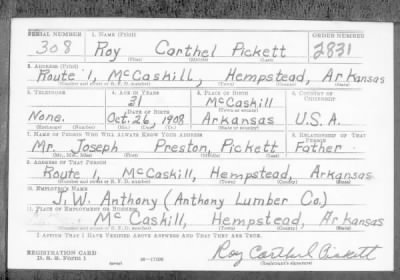 SERIAL NUMBER 1. NAME (Print) ORDER NUMBER
308 Roy Carthel Pickett 2831
(First) (Middle) (Last)
2. ADDRESS (Print)
Route 1, McCaskill, Hempstead, Arkansas
(Number and street or R. F. D. number) (Town) (County) (State)
3. TELEPHONE 4. AGE IN YEARS 5. PLACE OF BIRTH 6. COUNTRY OF
31 McCaskill CITIZENSHIP
DATE OF BIRTH (Town or county)
None. Oct. 26, 1908 Arkansas U.S.A.
(Exchange) (Number) (Mo.) (Day) (Yr.) (State or country)
7. NAME OF PERSON WHO WILL ALWAYS KNOW YOUR ADDRESS 8. RELATIONSHIP OF THAT
PERSON
Mr. Joseph Preston, Pickett Father
(Mr., Mrs., Miss) (First) (Middle) (Last)
9. ADDRESS OF THAT PERSON
Route 1, McCaskill, Hempstead, Arkansas
(Number and street or R. F. D. number) (Town) (County) (State)
10. EMPLOYER'S NAME
J. W. Anthony (Anthony Lumber Co.)
11. PLACE OF EMPLOYMENT OR BUSINESS
McCaskill, Hempstead, Arkansas
(Number and street or R. F. D. number) (Town) (County) (State)
I AFFIRM THAT I HAVE VERIFIED ABOVE ANSWERS AND THAT THEY ARE TRUE.
REGISTRATION CARD Roy Carthel Pickett
D. S. S. Form 1 (over) (Registrant's signature)